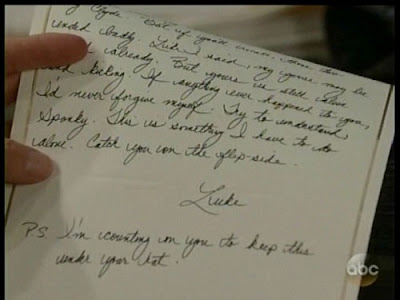 Clyde. But if you
ended badly. Luke I said, my yours may be
already. But yours is still alive
and kicking. If anything ever happened to you,
I'd never forgive myself. Try to understand,
Spooky. This is something I have to do
alone. Catch you on the flip-side.
Luke
P.S. I'm counting on you to keep this
under your hat.
abc